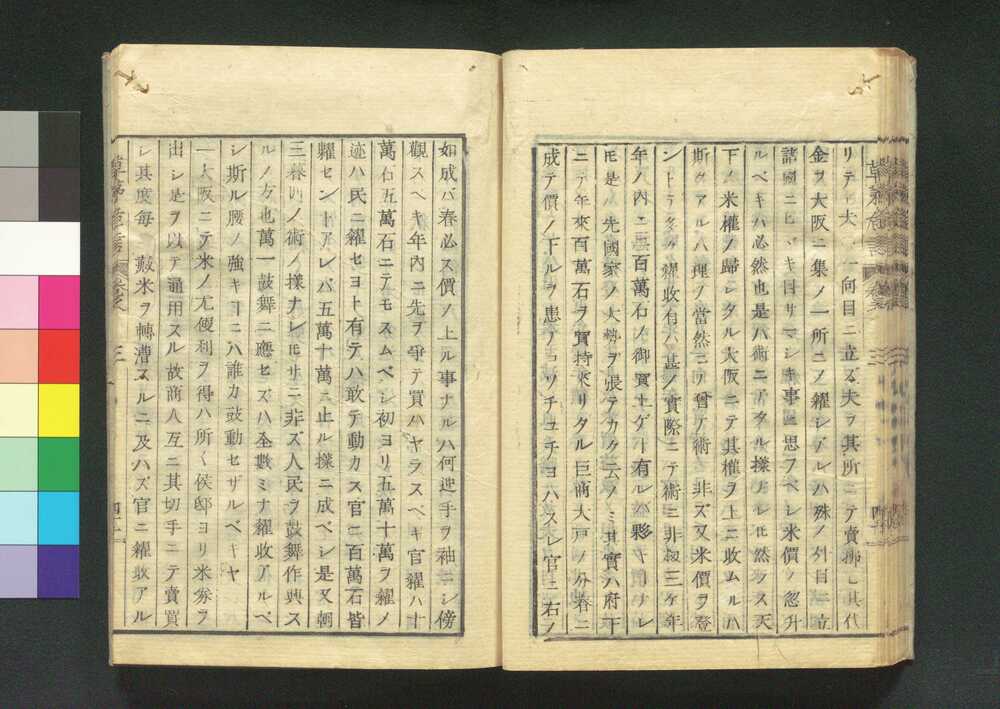 リテ大 一向目ニ立ズ夫ヲ其所ニテ賣拂ヒ其代
金ヲ大阪ニ集メ一所ニテ糴シアルハ殊ノ外目ニ立
諸國ニヒヾキ目サマシキ事ト思フベシ米價ノ忽升
ルベキハ必然也是ハ術ニアタル樣ナレ𪜈然ラス天
下ノ米權ノ歸シタル大阪ニテ其權ヲ上ニ收ムルハ
斯クアル八理ノ當然ニテ曾テ術ニ非ズ又米價ヲ登
ントテ多ク糴收有ハ甚ノ實際ニテ術ニ非ズ三ケ年
年ノ內ニ三百萬石ノ御買上ゲト有ルハ夥キ ナレ
𪜈是ハ先國家ノ大勢ヲ張テカク云ノミ其實ハ府下
ニテ年來百萬石ヲ買持來リタル巨商大戸ノ分春ニ
成テ價ノ下ルヲ患ノ ツチユチヨハスレ官ニ右ノ
如成バ春必ス價ノ上ル事ナルハ何迚手ヲ袖ニシ傍
觀スベキ年內ニ先ヲ爭テ買ハヤラスベキ官糴ハ十
萬石五萬石ニテモスムベシ初ヨリ五萬十萬ヲ糴ノ
迹ハ民ニ糴セヨト有テハ敢テ動カス官ニ百萬石皆
糴セントアレバ五萬十萬ニ止ル樣ニ成ベシ是又朝
三暮四ノ術ノ樣ナレ𪜈サニ非ズ人民ヲ鼓舞作興ス
ルノ方也萬一鼓舞ニ應ヒズハ全數ミナ糴收アルベ
シ斯ル腰ノ強キヿニハ誰カ鼓動セザルベキヤ
一大阪ニテ米ノ尤便利ヲ得ハ所〱侯邸ヨリ米券ヲ
出シ是ヲ以テ通用スル故商人互ニ其切手ニテ賣買
シ其度每ニ廒米ヲ轉漕スルニ及ハズ官ニ糴收アル